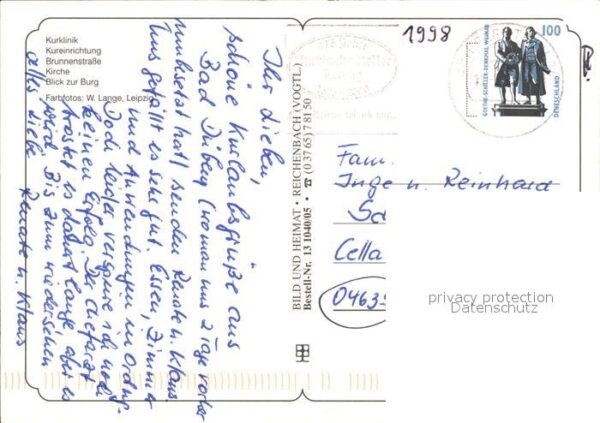 Kurklinik
Kureinrichtung
Brunnenstraße
Kirche
Blick zur Burg
Farbfotos: W. Lange, Leipzig
Ihr Lieben,
schöne Kurlaubsgrüße aus
Bad Düben (woman uns 2 Tage vorher
umbesetzt hat) senden Renate u. Klaus
Uns gefällt es sehr gut. Essen, Zimmer
und Anwendungen in Ordng.
Doch leider verspüre ich noch
keinen Erfolg. Der Chefarzt
tröstet, es dauert lange aber es
wird. Bis zum wiedersehen
alles Liebe Renate u. Klaus
BILD UND HEIMAT • REICHENBACH (VOGTL.)
Bestell-Nr. 13 1040/05 • ☎ (03765) 78150
1998
100
GOETHE-SCHILLER-DENKMAL WEIMAR
DEUTSCHLAND
Fam.
Inge u. Reinhard
Sa
Cella
0463
privacy protection
Datenschutz